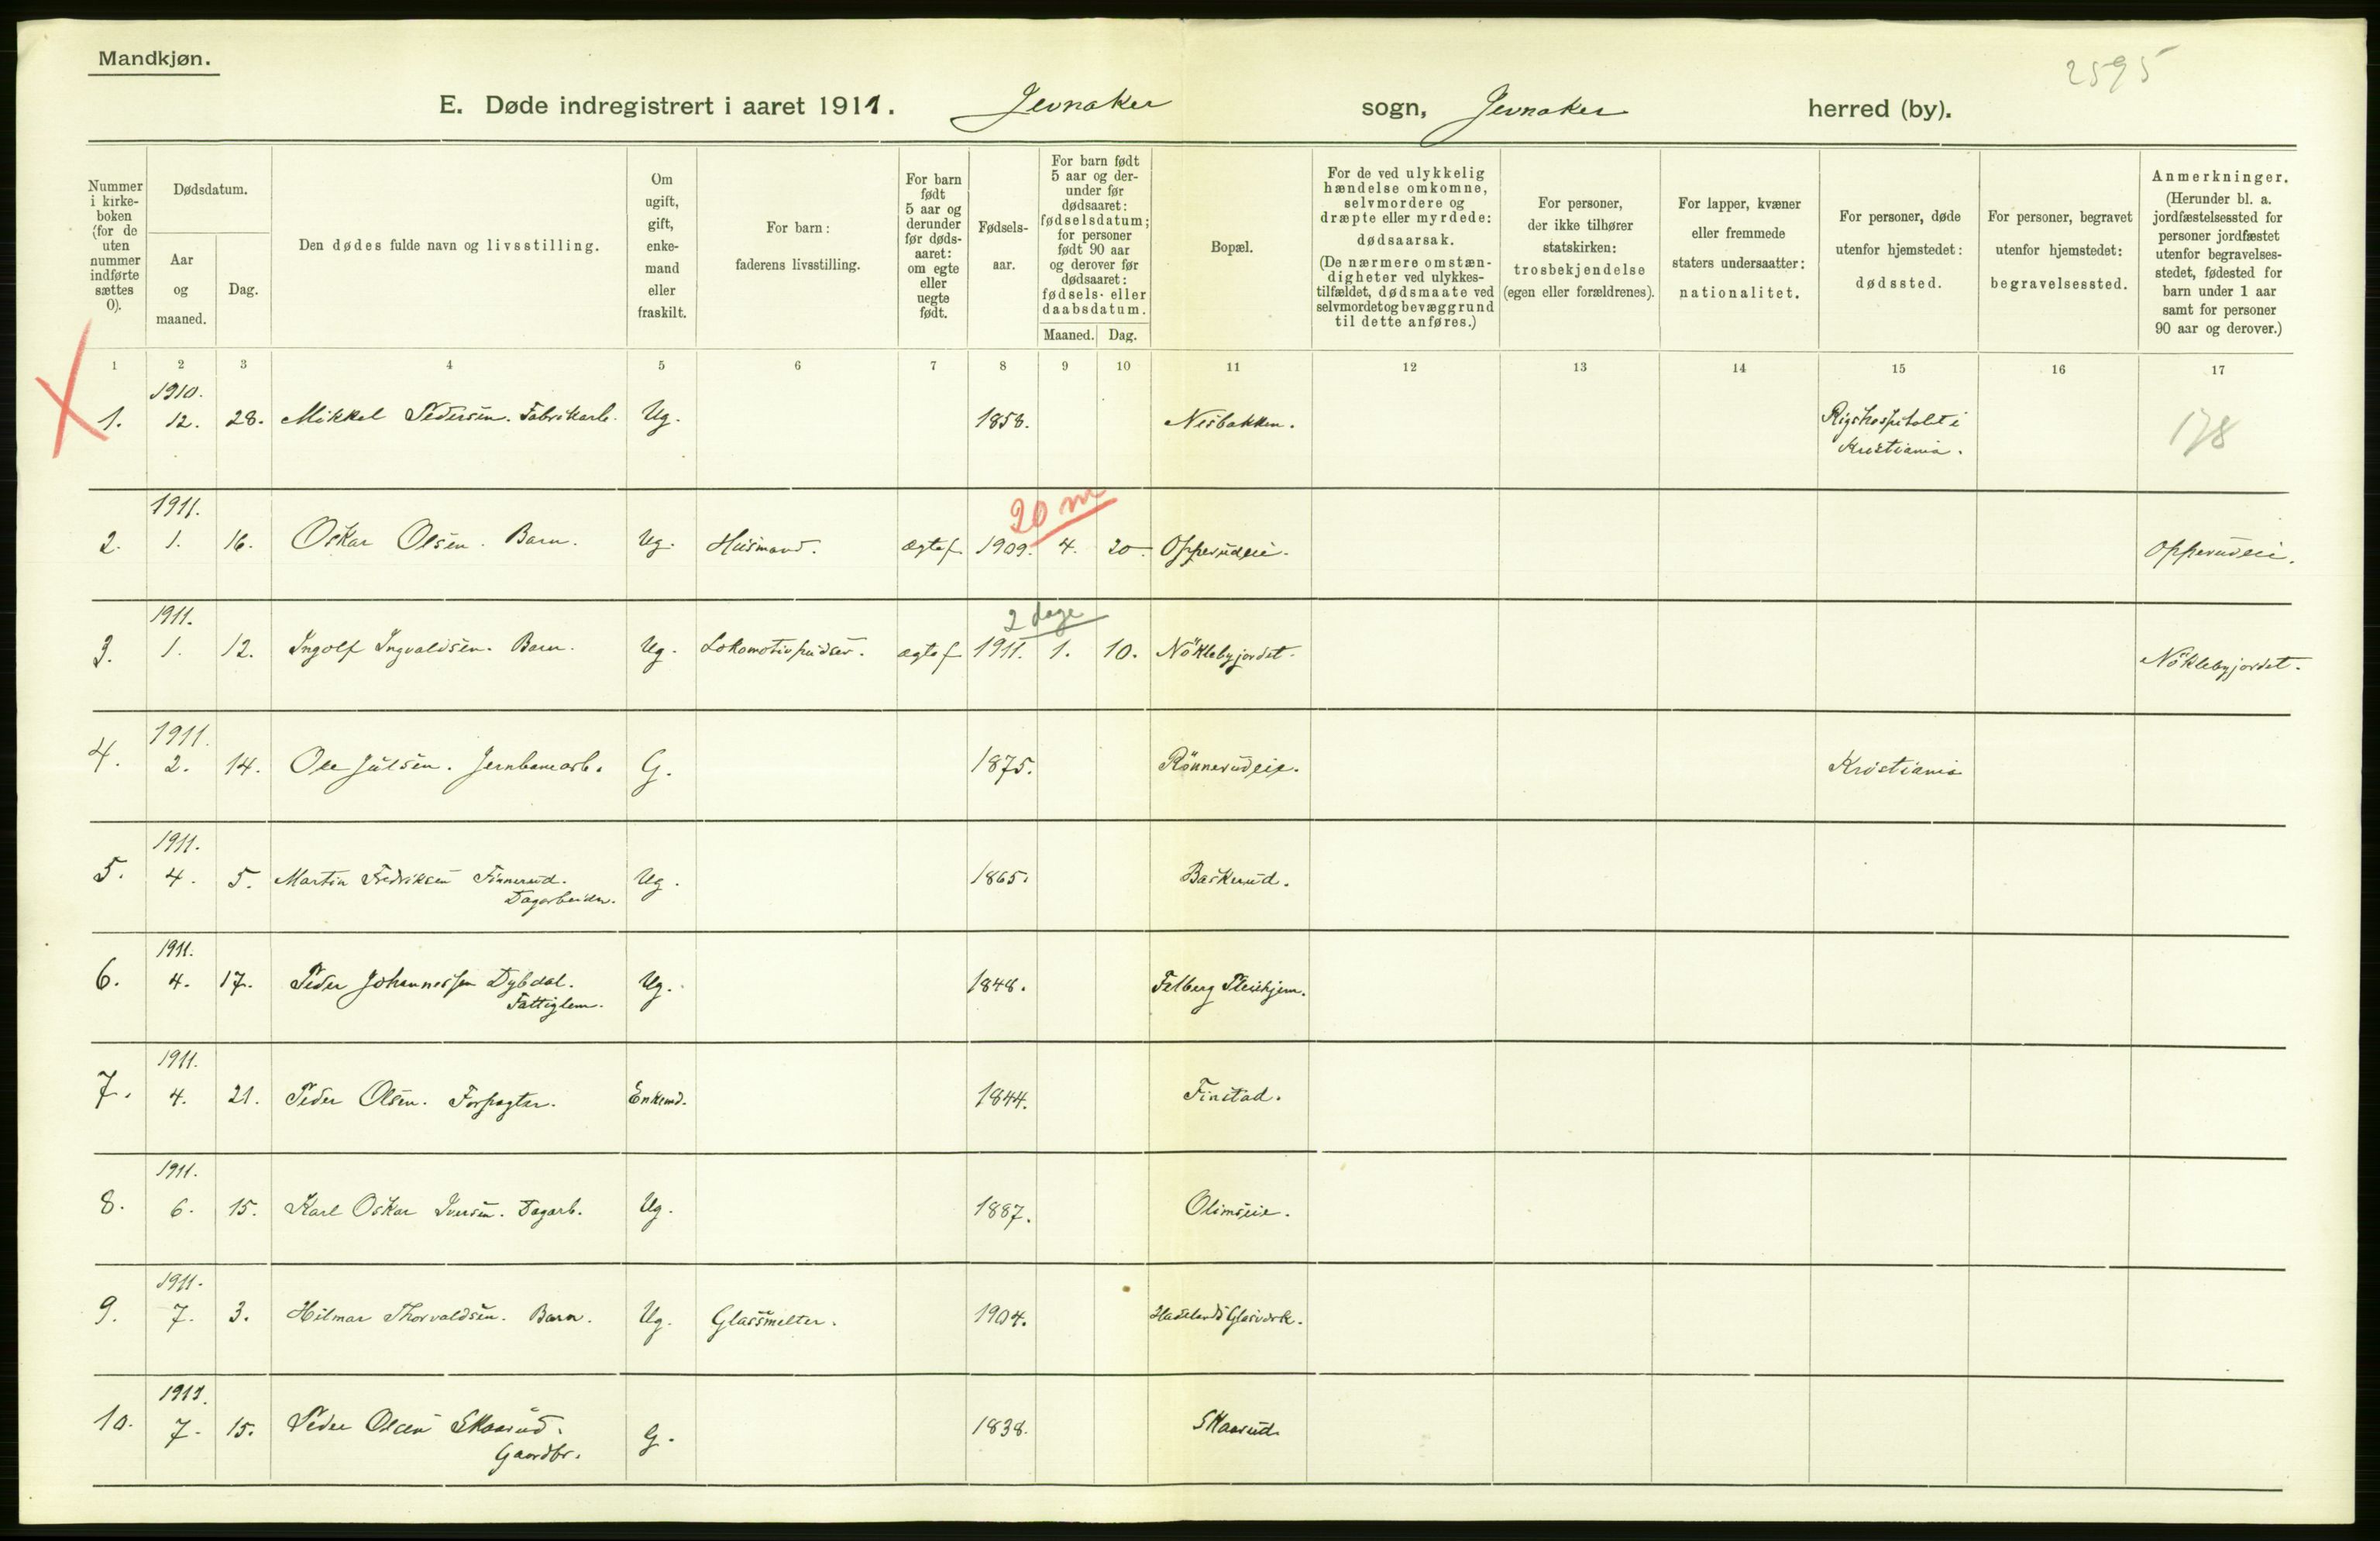 Mandkjøn.
2595
E. Døde indregistrert i aaret 1911. Jevnaker sogn, Jevnaker herred (by).
Nummer i kirke-boken (for de uten nummer indførte sættes 0).
Dødsdatum.
Aar og maaned.
Dag.
Den dødes fulde navn og livsstilling.
Om ugift, gift, enke-mand eller fraskilt.
For barn: faderens livsstilling.
For barn født 5 aar og derunder før døds-aaret: om egte eller uegte født.
Fødsels-aar.
For barn født 5 aar og der-under før dødsaaret: fødselsdatum; for personer født 90 aar og derover før dødsaaret: fødsels- eller daabsdatum.
Maaned. Dag.
Bopæl.
For de ved ulykkelig hændelse omkomne, selvmordere og dræpte eller myrdede: dødsaarsak. (De nærmere omstæn-digheter ved ulykkes-tilfældet, dødsmaate ved selvmordet og bevæggrund til dette anføres.)
For personer, der ikke tilhører statskirken: trosbekjendelse (egen eller forældrenes).
For lapper, kvæner eller fremmede staters undersaatter: nationalitet.
For personer, døde utenfor hjemstedet: dødssted.
For personer, begravet utenfor hjemstedet: begravelsessted.
Anmerkninger. (Herunder bl. a. jordfæstelsessted for personer jordfæstet utenfor begravelses-stedet, fødested for barn under 1 aar samt for personer 90 aar og derover.)
1 2 3 4 5 6 7 8 9 10 11 12 13 14 15 16 17
1910.
1. 12. 28. Mikkel Pedersen. Fabrikarb. Ug. 1858. Nesbakken. Rigshospitalet i Kristiania. 178
20 m
1911.
2. 1. 16. Oskar Olsen. Barn. Ug. Husmand. ægtef. 1909. 4. 20. Opperudeie. Opperudeie.
2 dage
1911.
3. 1. 12. Ingolf Ingvaldsen. Barn. Ug. Lokomotivpudser. ægtef 1911. 1. 10. Nöklebyjordet. Nöklebyjordet.
1911.
4. 2. 14. Ole Julsen. Jernbanearb. G. 1875. Rönnerudeie. Kristiania
1911.
5. 4. 5. Martin Fredriksen Finnerud. Ug. 1865. Baskerud.
Dagarbeider.
1911.
6. 4. 17. Peder Johannessen Dybdal. Ug. 1848. Felberg Pleiehjem.
Fattiglem.
1911.
7. 4. 21. Peder Olsen. Forpagter. Enkemd. 1844. Finstad.
1911.
8. 6. 15. Karl Oskar Iversen. Dagarb. Ug. 1887. Olimseie.
1911.
9. 7. 3. Hilmar Thorvaldsen. Barn. Ug. Glassmelter. 1904. Hadelands Glasværk.
1911.
10. 7. 15. Peder Olsen Skaarud. G. 1838. Skaarud.
Gaardbr.